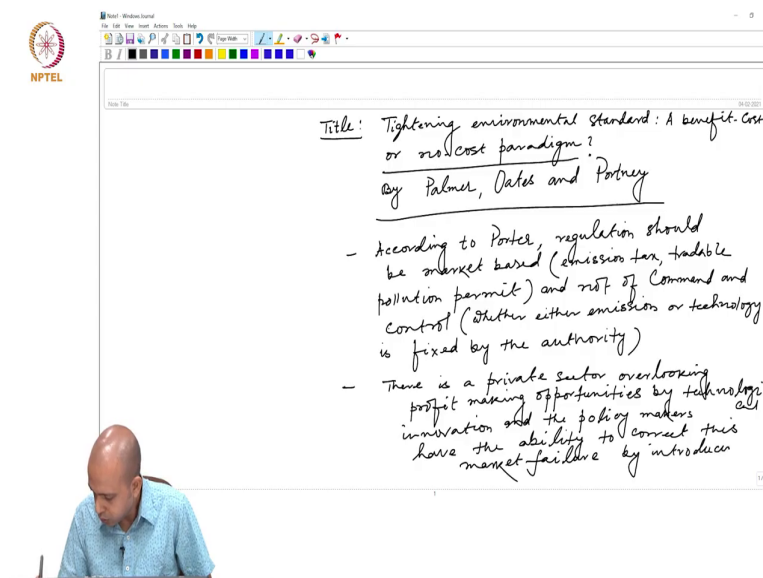 Note1 - Windows Journal
File Edit View Insert Actions Tools Help
Page Width
B I
NPTEL
Note Title
04-02-2021
Title: Tightening environmental standard: A benefit-cost
or no cost paradigm?
By Palmer, Oates and Portney
- According to Porter, regulation should
be market based (emission tax, tradable
pollution permit) and not of Command and
control (whether either emission or technology
is fixed by the authority)
- There is a private sector overlooking
profit making opportunities by technologi
cal
innovation and the policy makers
have the ability to correct this
market failure by introducin
1